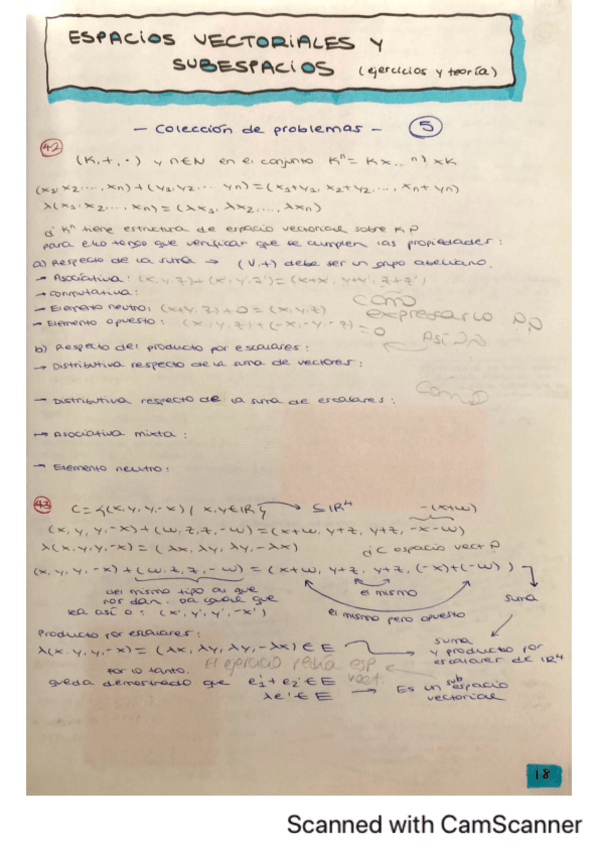 ESPACIOS VECTORIALES Y
SUBESPACIOS (ejercicios y teoría)
- Colección de problemas - 5
42
(K,+,·) y n∈N en el conjunto Kⁿ = K x...n) x K
(x₁,x₂...,xn)+(y₁,y₂... yn)=(x₁+y₁, x₂+y₂,..., xn+yn)
λ(x₁,x₂...,xn)=(λx₁, λx₂,...,λxn)
d' Kⁿ tiene estructura de espacio vectorial sobre K?
para ello tengo que verificar que se cumplen las propiedades:
a) Respecto de la suma → (V,+) debe ser un grupo abeliano.
→ Asociativa: (x,y,z)+(x',y',z')=(x+x', y+y', z+z')
→ conmutativa:
- Elemento neutro: (x+y,z)+0=(x,y,z)
- Elemento opuesto: (x,y,z)+(-x,-y,-z)=0
como
expresarlo ??
Así ??
b) Respecto del producto por escalares:
→ Distributiva respecto de la suma de vectores:
como
- Distributiva respecto de la suma de escalares:
→ Asociativa mixta:
- Elemento neutro:
43 C={(x,y,y,-x) / x,y∈IR} → SIR⁴
-(x+w)
(x,y,y,-x)+(w,z,z,-w)=(x+w, y+z, y+z, -x-w)
λ(x,y,y,-x)=(λx, λy, λy, -λx) d' C espacio vect?
(x,y,y,-x)+(w,z,z,-w)=(x+w, y+z, y+z, (-x)+(-w))
del mismo tipo al que
nos dan. Da igual que
sea así o: (x',y',y',-x')
el mismo
el mismo pero opuesto
suma
Producto por escalares:
λ(x,y,y,-x)=(λx, λy, λy, -λx)∈E
suma
y producto por
escalar de IR⁴
Por lo tanto, El ejercicio pedía esp vect.
queda demostrado que e₁'+e₂'∈E
λe'∈E → Es un subespacio
vectorial
18
Scanned with CamScanner